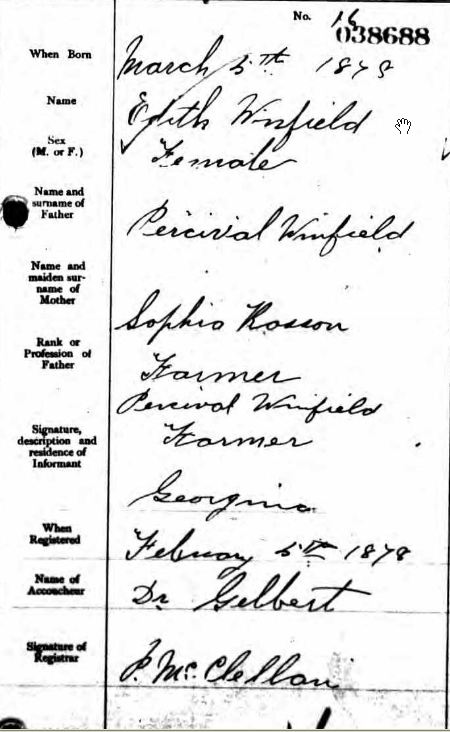 No. 16
038688
When Born March 5th 1878
Name Edith Winfield
Sex (M. or F.) Female
Name and surname of Father Percival Winfield
Name and maiden surname of Mother Sophia Rosson
Rank or Profession of Father Farmer
Signature, description and residence of Informant Percival Winfield
Farmer
Georgina
When Registered February 5th 1878
Name of Accoucheur Dr Gelbert
Signature of Registrar P. McClellan